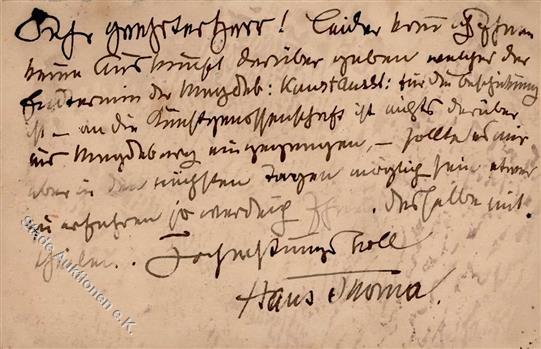 Sehr geehrter Herr! Leider kann ich Ihnen
keine Auskunft darüber geben welcher der
Endtermin der Magdeb: Kunstausst: für die Beschickung
ist – an die Kunstgenossenschaft ist nichts darüber
aus Magdeburg eingegangen, – sollte es mir
aber in den nächsten Tagen möglich sein etwas
zu erfahren so werde ich Ihnen dasselbe mit-
theilen. Hochachtungsvoll
Hans Thoma.
Stade Auktionen e.K.